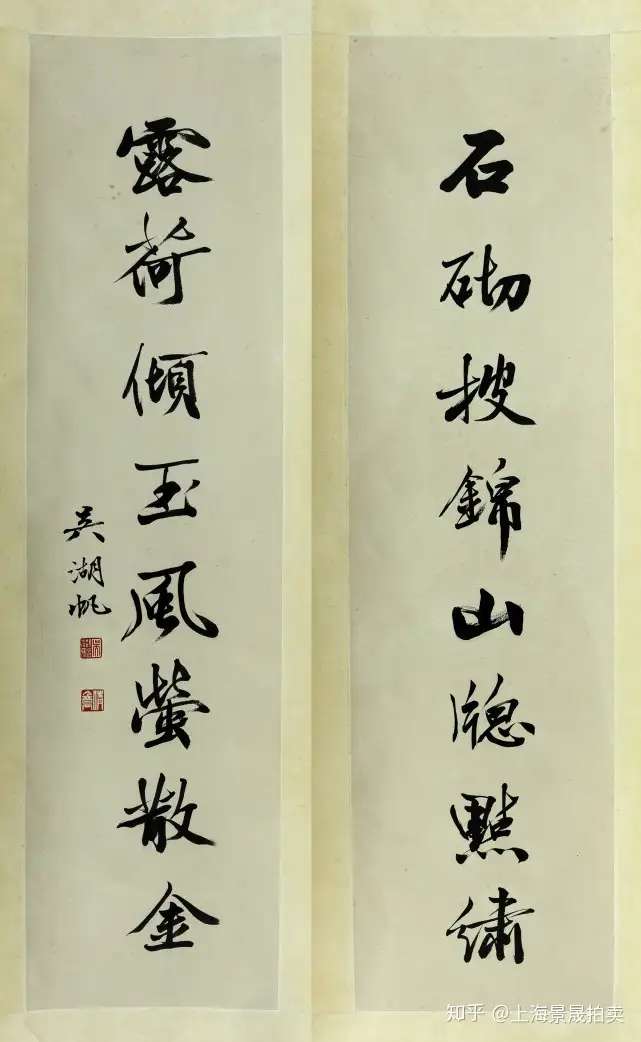 石砌搜錦山牕點繡
露荷傾玉風螢散金
吳湖帆
知乎 @上海景晟拍卖